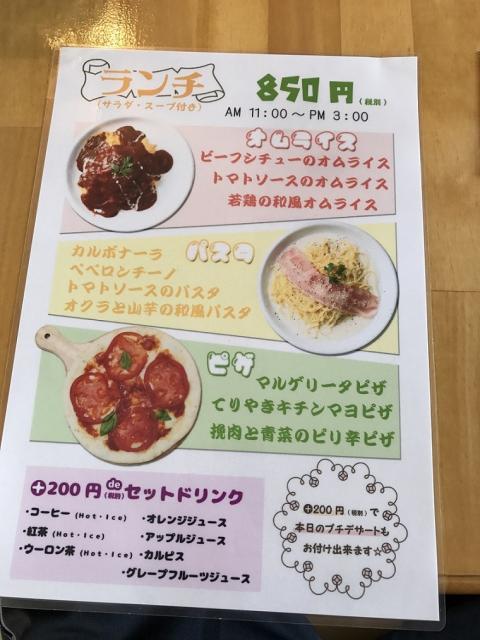 ランチ
(サラダ・スープ付き)
850円(税別)
AM 11:00～PM 3:00
オムライス
ビーフシチューのオムライス
トマトソースのオムライス
若鶏の和風オムライス
パスタ
カルボナーラ
ペペロンチーノ
トマトソースのパスタ
オクラと山芋の和風パスタ
ピザ
マルゲリータピザ
てりやきチキンマヨピザ
挽肉と青菜のピリ辛ピザ
+200円(税別)deセットドリンク
・コーヒー(Hot・Ice)
・紅茶(Hot・Ice)
・ウーロン茶(Hot・Ice)
・オレンジジュース
・アップルジュース
・カルピス
・グレープフルーツジュース
+200円(税別)で
本日のプチデザートも
お付け出来ます☆